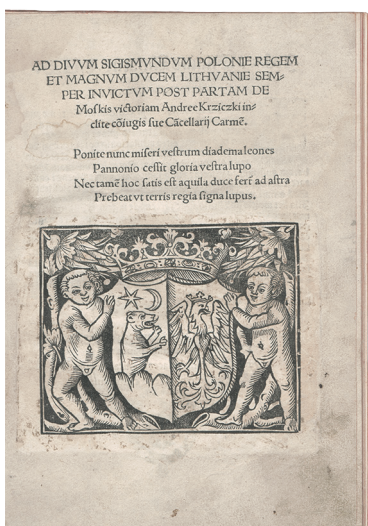 AD DIVUM SIGISMVNDVM POLONIE REGEM
ET MAGNVM DVCEM LITHVANIE SEM⸗
PER INVICTVM POST PARTAM DE
Moskis victoriam Andree Krziczki in⸗
clite cõiugis sue Cãcellarij Carmẽ.
Ponite nunc miseri vestrum diadema leones
Pannonio cessit gloria vestra lupo
Nec tamẽ hoc satis est aquila duce ferť ad astra
Prebeat vt terris regia signa lupus.